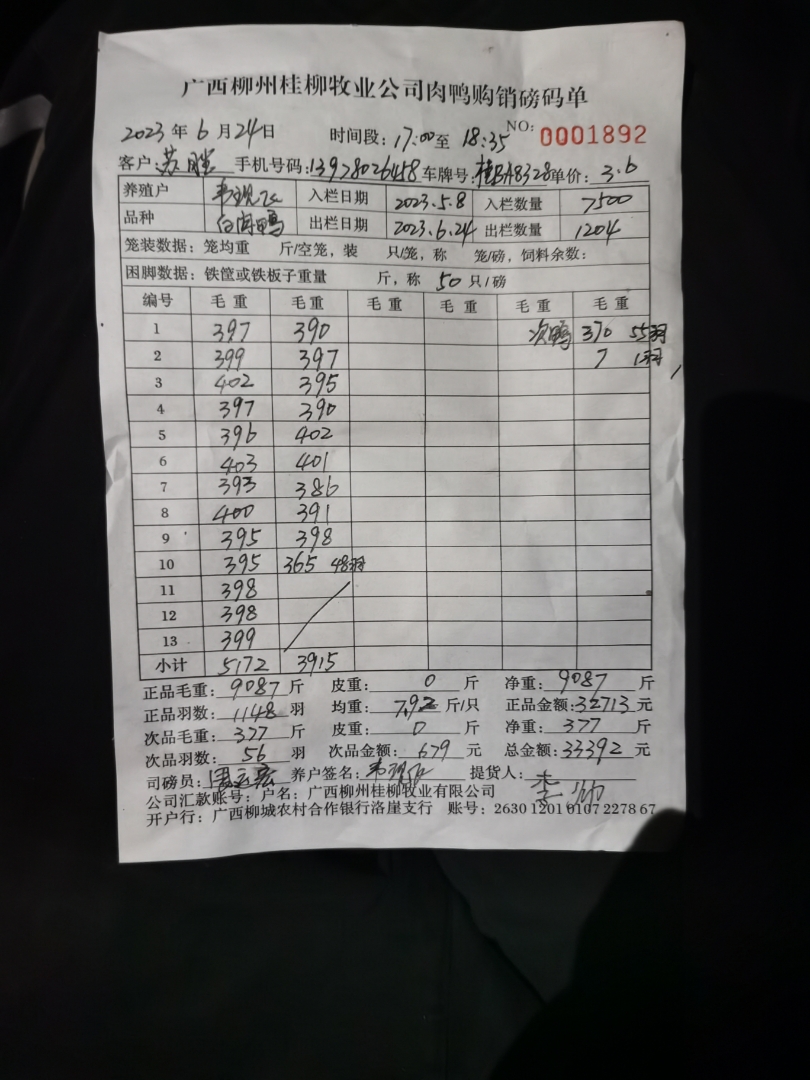 广西柳州桂柳牧业公司肉鸭购销磅码单
2023 年 6 月 24 日 时间段: 17:00 至 18:35 NO: 0001892
客户: 苏胜 手机号码: 13978026458 车牌号: 桂BA8328 单价: 3.6
养殖户 入栏日期 2023.5.8 入栏数量 7500
品种 出栏日期 2023.6.24 出栏数量 1204
笼装数据: 笼均重 斤/空笼, 装 只/笼, 称 笼/磅, 饲料余数:
困脚数据: 铁筐或铁板子重量 斤, 称 50 只/磅
编号 毛重 毛重 毛重 毛重 毛重 毛重
1 397 390 次鸭 370 55羽
2 399 397 7 1羽
3 402 395
4 397 390
5 396 402
6 403 401
7 393 386
8 400 391
9 395 398
10 395 365 48羽
11 398
12 398
13 399
小计 5172 3915
正品毛重: 9087 斤 皮重: 0 斤 净重: 9087 斤
正品羽数: 1148 羽 均重: 7.92 斤/只 正品金额: 32713 元
次品毛重: 377 斤 皮重: 0 斤 净重: 377 斤
次品羽数: 56 羽 次品金额: 679 元 总金额: 33392 元
司磅员: 养户签名: 提货人:
公司汇款账号: 户名: 广西柳州桂柳牧业有限公司
开户行: 广西柳城农村合作银行洛崖支行 账号: 2630 1201 0107 2278 67